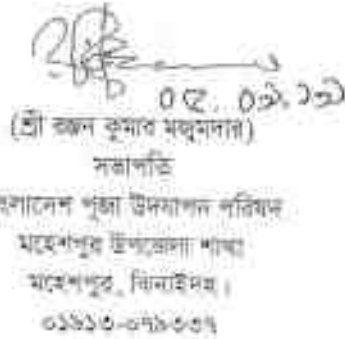 ০৫. ০৯. ১৯
(শ্রী রঞ্জন কুমার মজুমদার)
সভাপতি
বাংলাদেশ পূজা উদযাপন পরিষদ
মহেশপুর উপজেলা শাখা
মহেশপুর, ঝিনাইদহ।
০১৯১৩-০৭৯৩৩৭